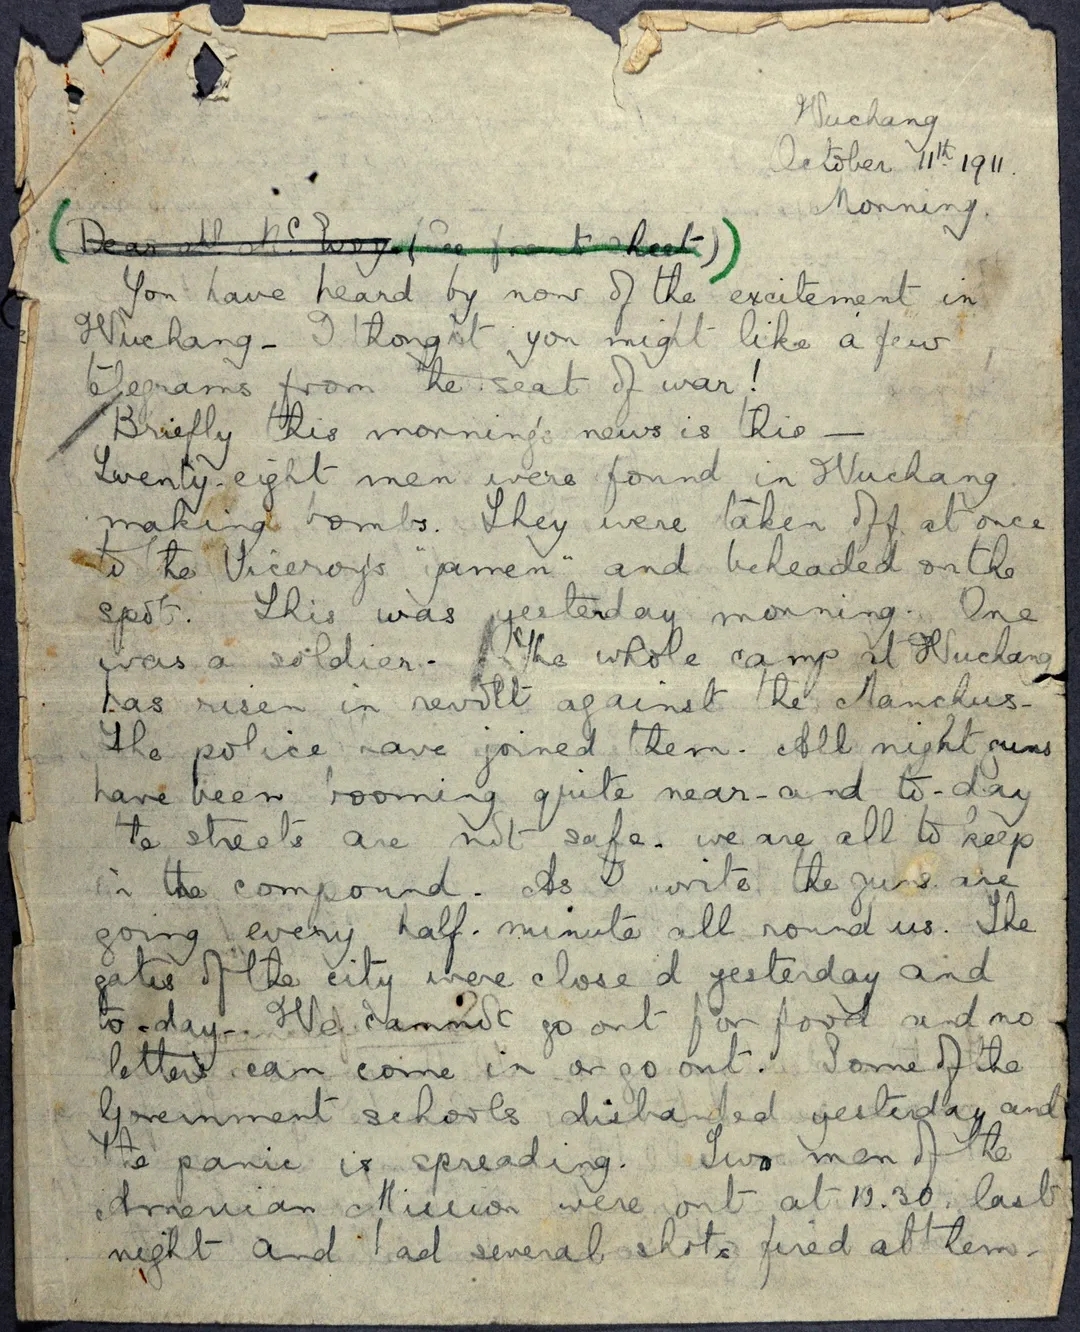 Wuchang
October 11th 1911.
Morning.
(Dear Mc Evoy (See front sheet))
You have heard by now of the excitement in
Wuchang - I thought you might like a few
telegrams from the seat of war!
Briefly this morning's news is this —
Twenty-eight men were found in Wuchang
making bombs. They were taken off at once
to the Viceroy's "yamen" and beheaded on the
spot. This was yesterday morning. One
was a soldier. The whole camp at Wuchang
has risen in revolt against the Manchus -
The police have joined them. All night guns
have been booming quite near - and to-day
the streets are not safe. we are all to keep
in the compound. As I write the guns are
going every half-minute all round us. The
gates of the city were closed yesterday and
to-day -. We cannot go out for food and no
letters can come in or go out. Some of the
Government schools disbanded yesterday and
the panic is spreading. Two men of the
American Mission were out at 10.30. last
night and had several shots fired at them -